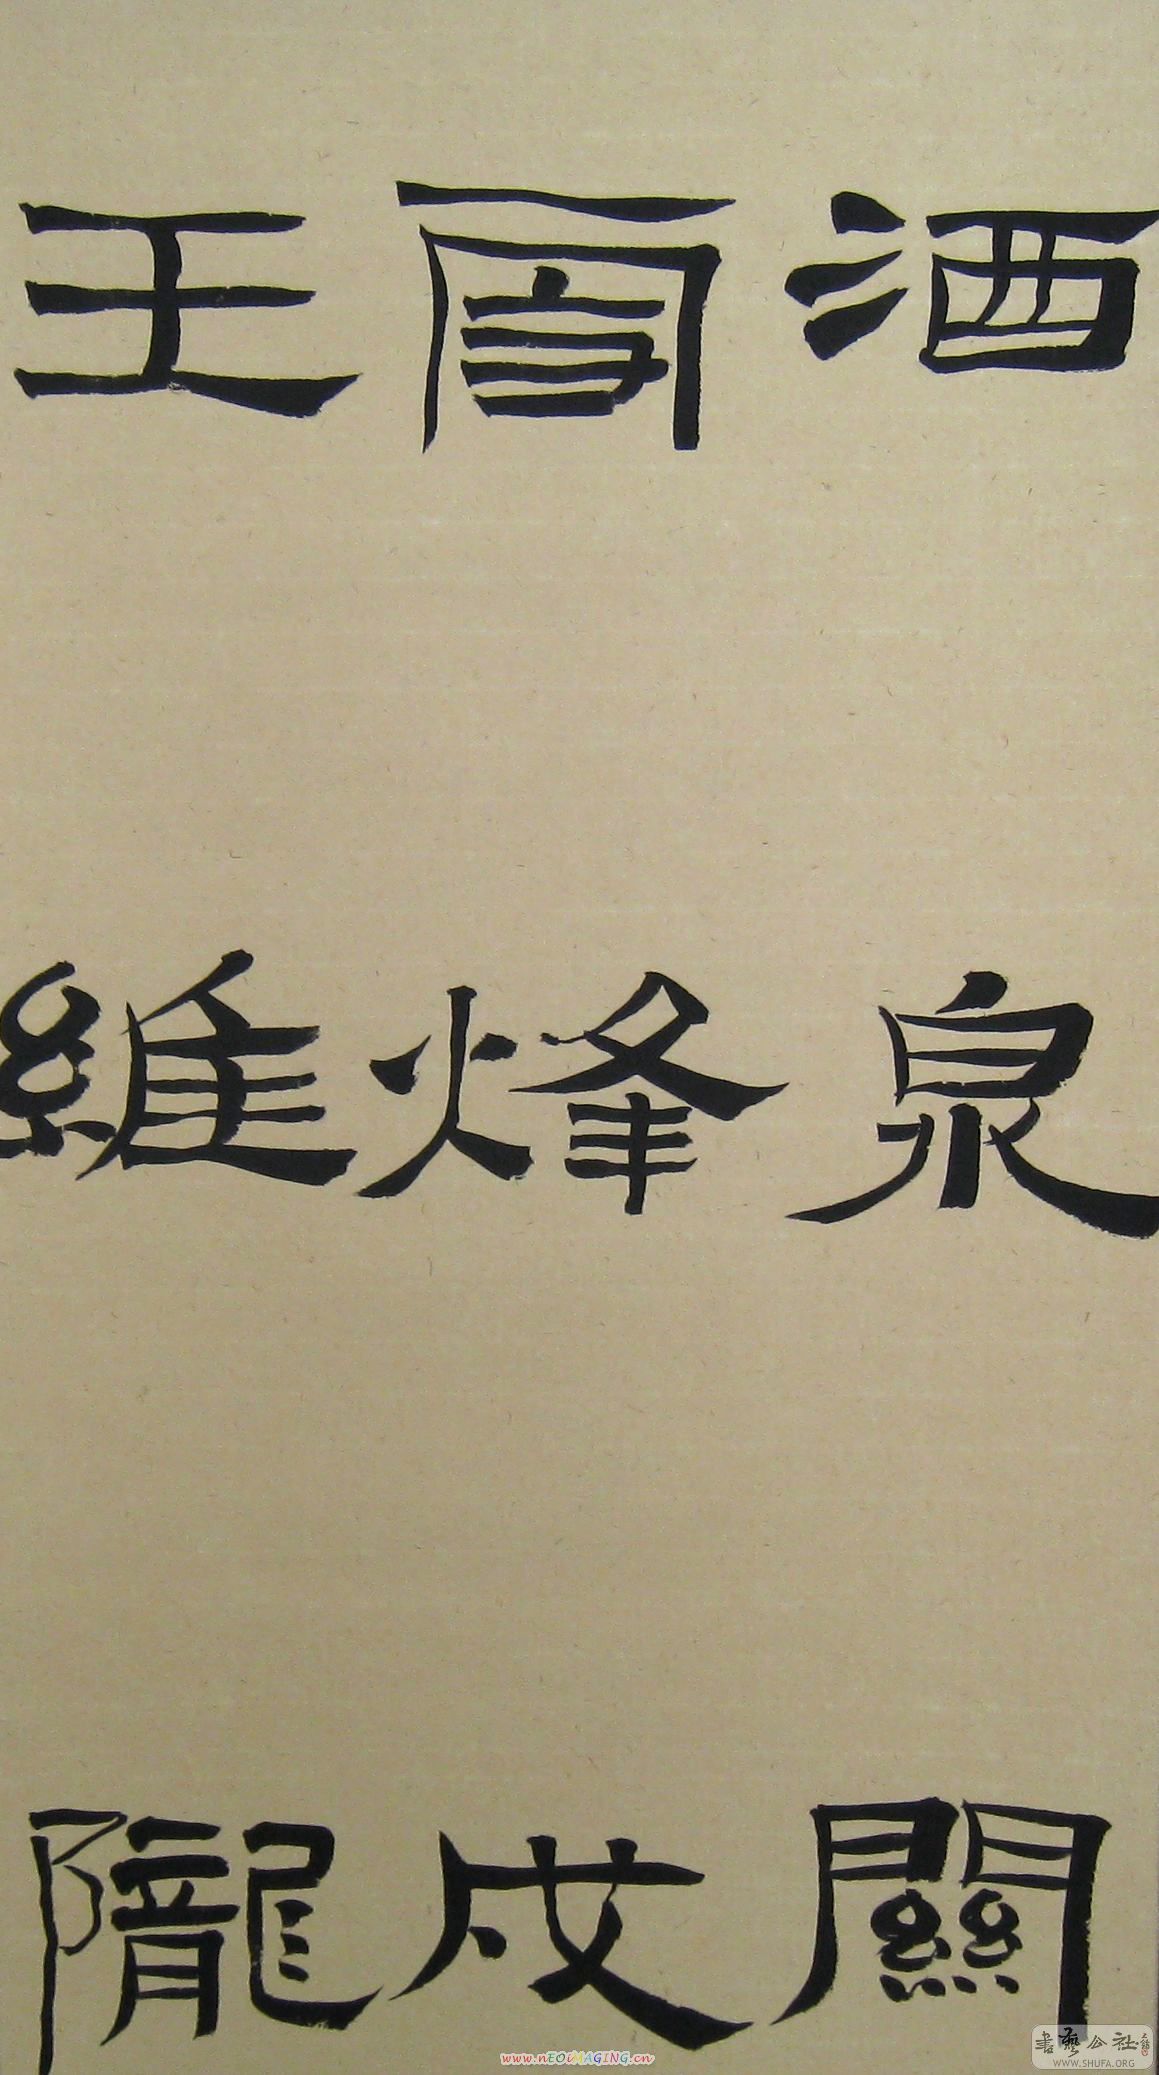 酒泉關
雪烽戍
王維隴
www.nEOiMAGiNG.cn
書藝公社
WWW.SHUFA.ORG